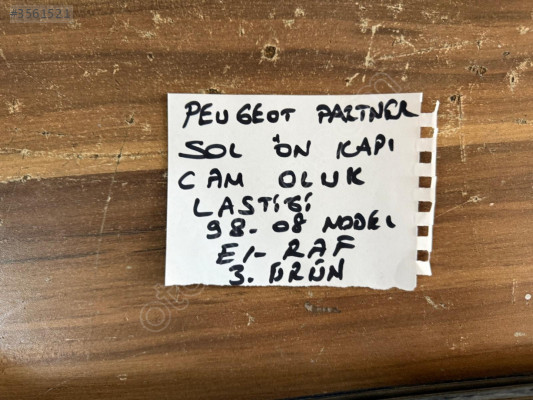 #3561521
PEUGEOT PARTNER
SOL ÖN KAPI
CAM OLUK
LASTİĞİ
98-08 MODEL
E1- RAF
3. ÜRÜN